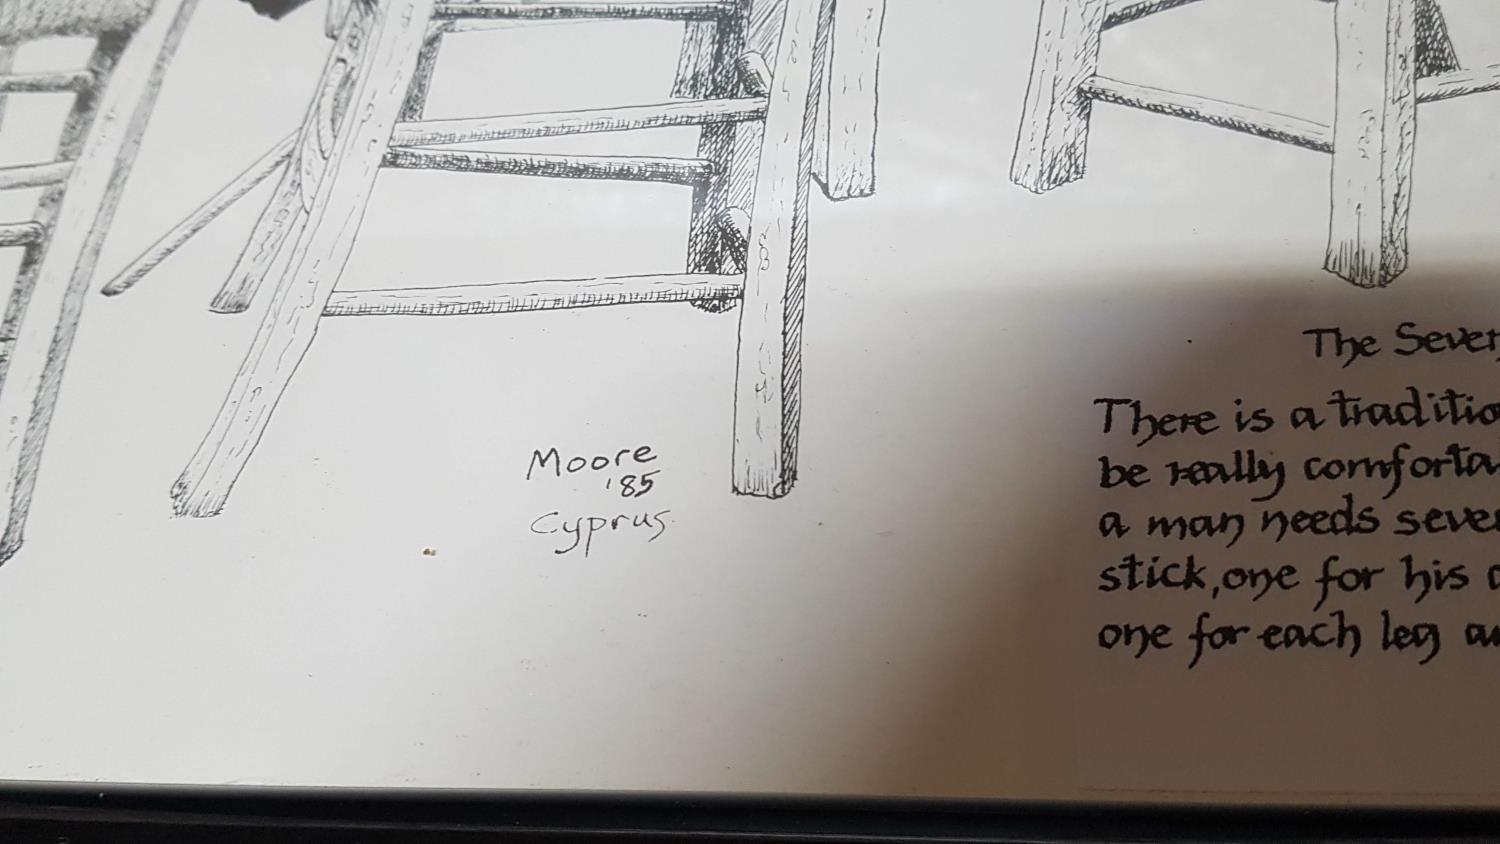 Moore
'85
Cyprus
The Seven
There is a traditio
be really comforta
a man needs seve
stick, one for his
one for each leg